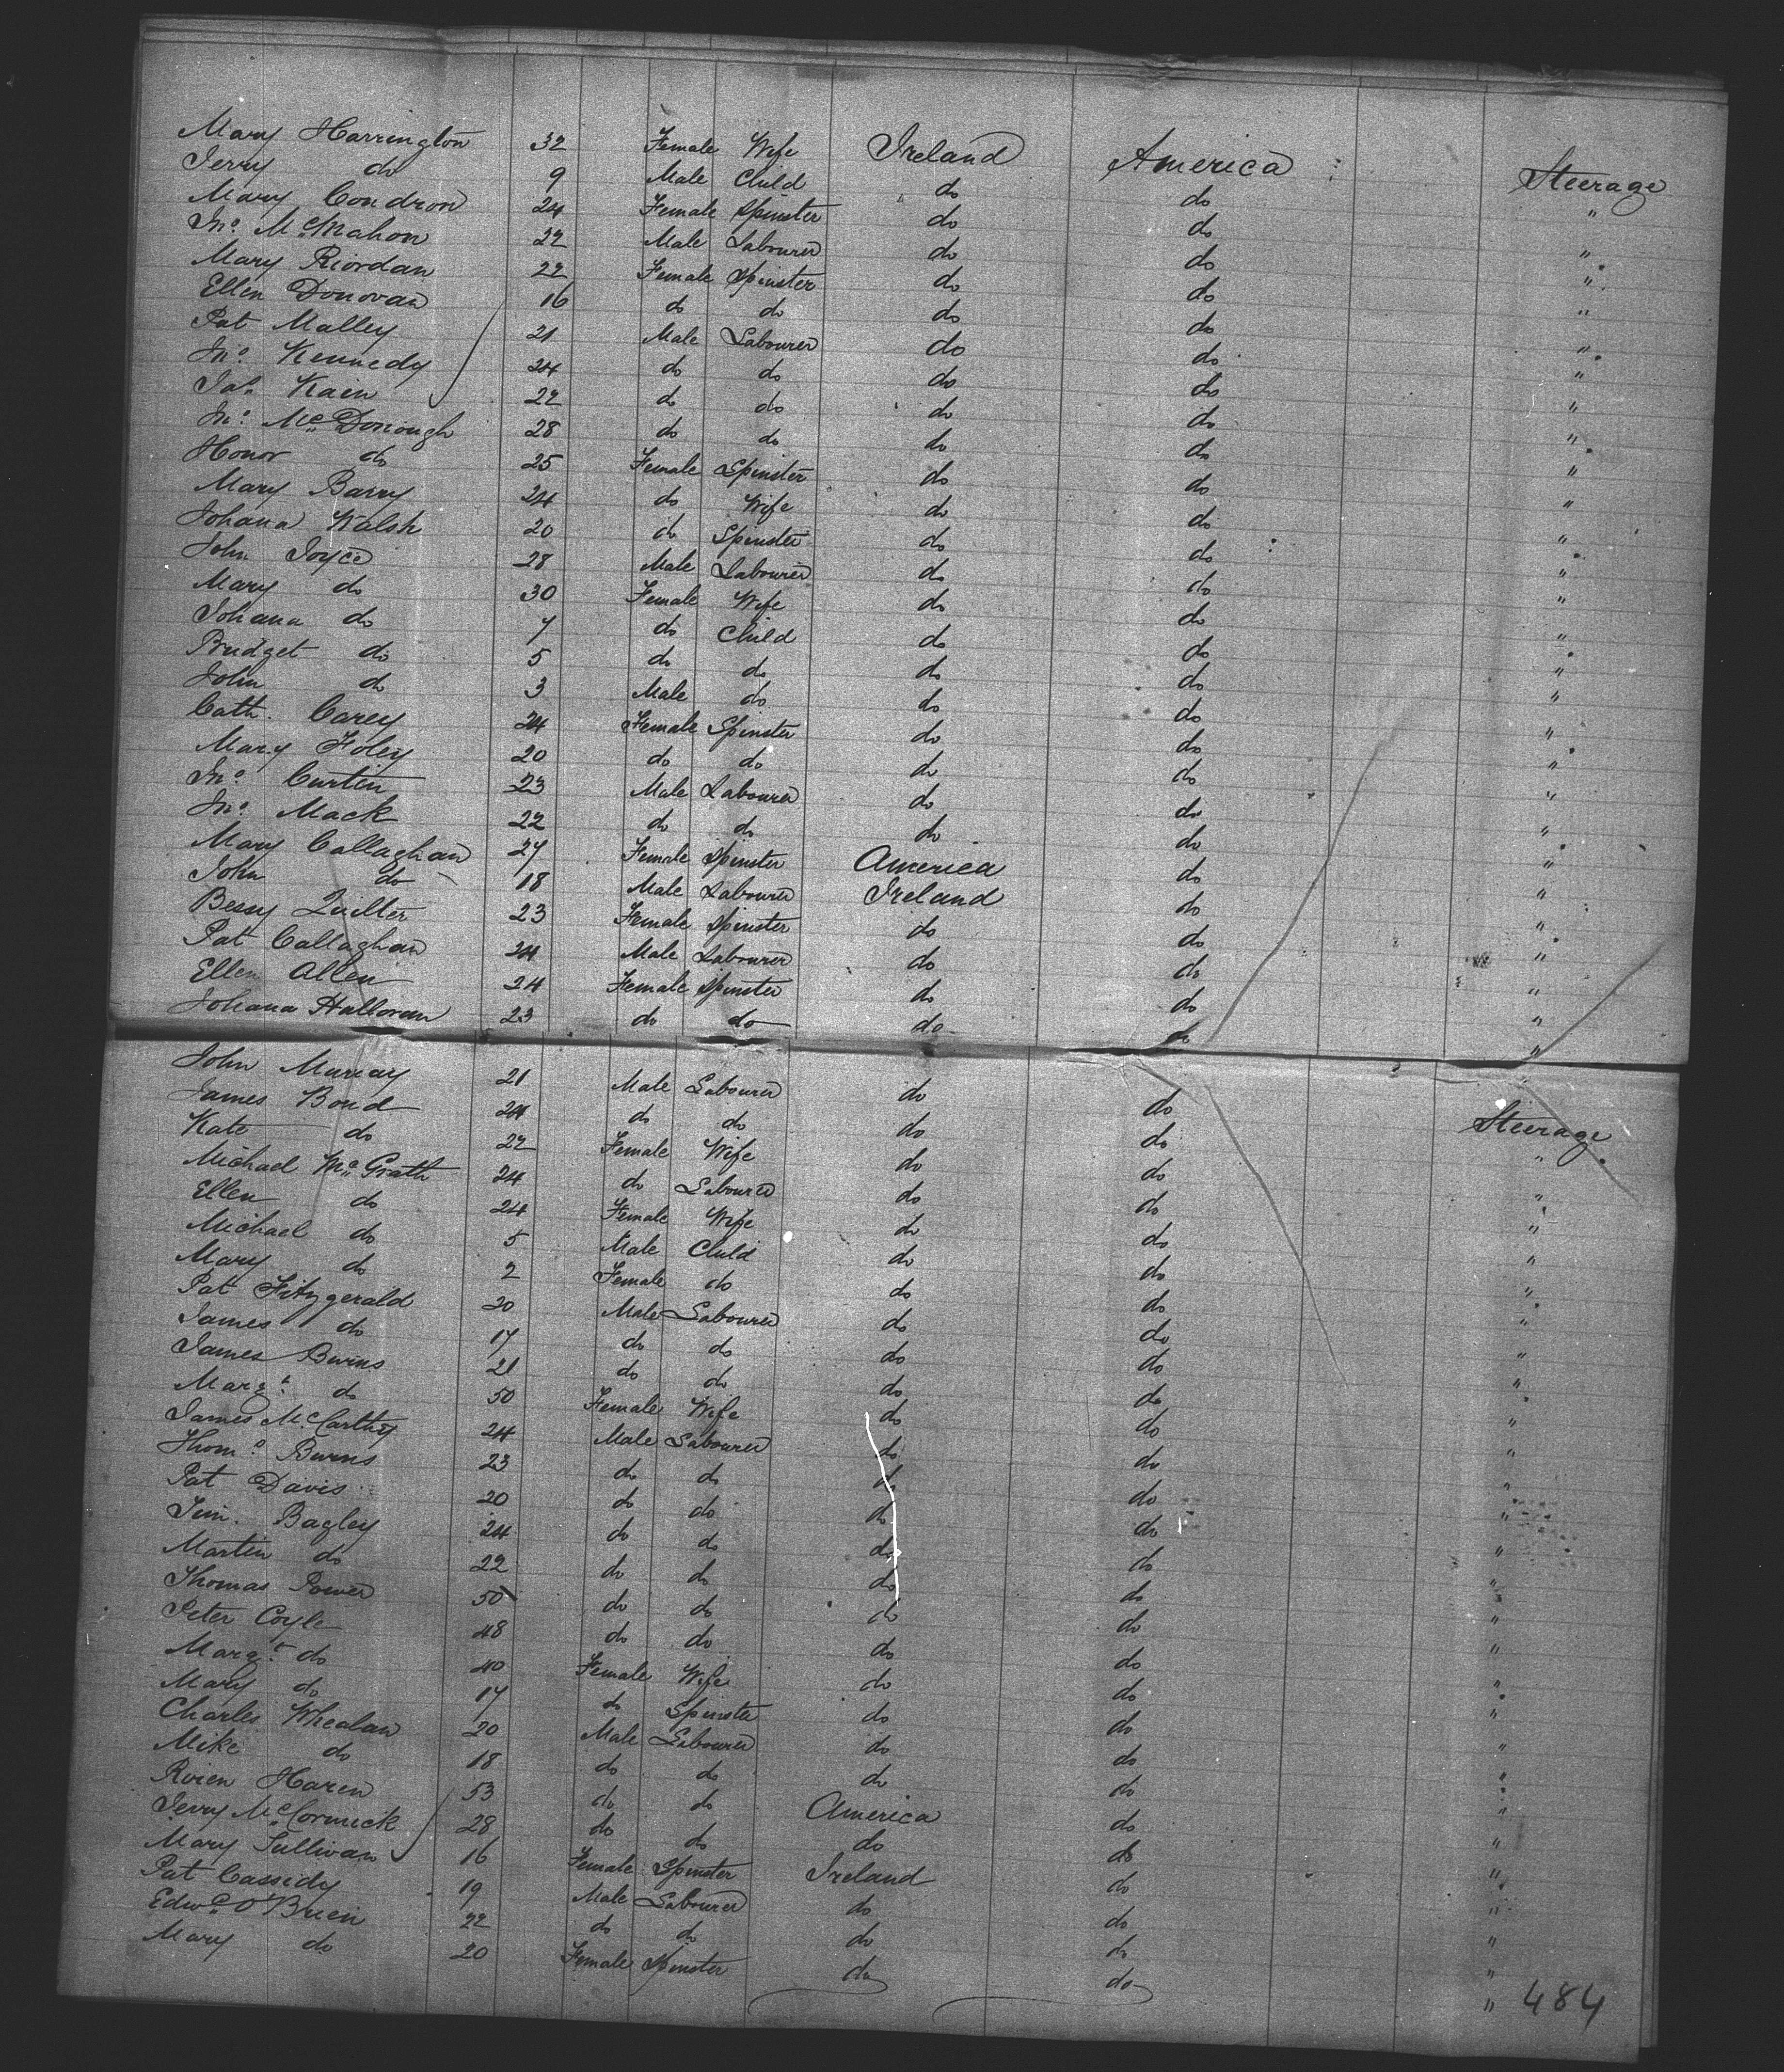 Mary Harrington 32 Female Wife Ireland America Steerage
Jerry do 9 Male Child do do "
Mary Condron 24 Female Spinster do do "
Jno. McMahon 22 Male Labourer do do "
Mary Riordan 22 Female Spinster do do "
Ellen Donovan 16 do do do do "
Pat Malley 21 Male Labourer do do "
Jno. Kennedy 24 do do do do "
Jas. Kain 22 do do do do "
Jno. McDonough 28 do do do do "
Honor do 25 Female Spinster do do "
Mary Barry 24 do Wife do do "
Johana Walsh 20 do Spinster do do "
John Joyce 28 Male Labourer do do "
Mary do 30 Female Wife do do "
Johana do 7 do Child do do "
Bridget do 5 do do do do "
John do 3 Male do do do "
Cath. Carey 24 Female Spinster do do "
Mary Foley 20 do do do do "
Jno. Curtin 23 Male Labourer do do "
Jno. Mack 22 do do do do "
Mary Callaghan 27 Female Spinster America do "
John do 18 Male Labourer Ireland do "
Bessy Quilter 23 Female Spinster do do "
Pat Callaghan 24 Male Labourer do do "
Ellen Allen 24 Female Spinster do do "
Johana Halloran 23 do do do do "
John Murray 21 Male Labourer do do Steerage
James Bond 24 do do do do "
Kate do 22 Female Wife do do "
Michael McGrath 24 do Labourer do do "
Ellen do 24 Female Wife do do "
Michael do 5 Male Child do do "
Mary do 2 Female do do do "
Pat Fitzgerald 20 Male Labourer do do "
James do 17 do do do do "
James Burns 21 do do do do "
Margt. do 50 Female Wife do do "
James McCarthy 24 Male Labourer do do "
Thomo. Burns 23 do do do do "
Pat Davis 20 do do do do "
Jim. Bagley 24 do do do do "
Martin do 22 do do do do "
Thomas Power 50 do do do do "
Peter Coyle 48 do do do do "
Margt. do 40 Female Wife do do "
Mary do 17 do Spinster do do "
Charles Whealan 20 Male Labourer do do "
Mike do 18 do do do do "
Haren 53 do do America do "
Jerry McCormick 28 do do do do "
Mary Sullivan 16 Female Spinster Ireland do "
Pat Cassidy 19 Male Labourer do do "
Edwd. O'Brien 22 do do do do "
Mary do 20 Female Spinster do do "
484